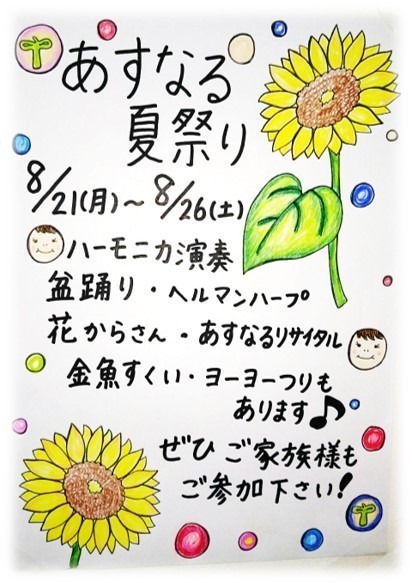 あすなる
夏祭り
8/21(月)～8/26(土)
ハーモニカ演奏
盆踊り・ヘルマンハープ
花からさん・あすなるリサイタル
金魚すくい・ヨーヨーつりも
あります♪
ぜひ ご家族様も
ご参加下さい!